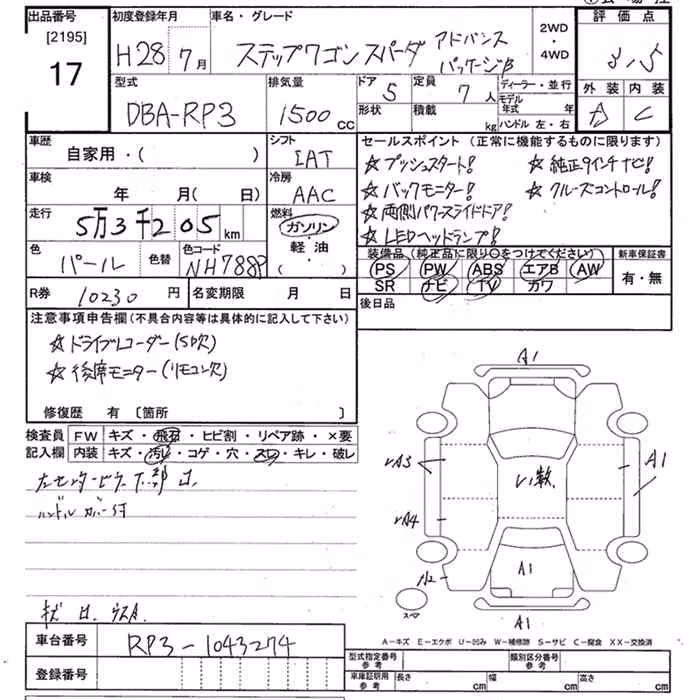 出品番号 初度登録年月 車名・グレード 2WD・4WD 評価点
[2195]
17 H28年 7月 ステップワゴンスパーダ アドバンスパッケージβ 3.5
型式 排気量 ドア 定員 ディーラー・並行 外装 内装
DBA-RP3 1500CC 5 7人 モデル年式 年 C
形状 積載 kg ハンドル 左・右
車歴 シフト セールスポイント (正常に機能するものに限ります)
自家用・( ) IAT ☆プッシュスタート! ☆純正9インチナビ!
車検 冷房 ☆バックモニター! ☆クルーズコントロール!
年 月(日) AAC ☆両側パワースライドドア!
走行 燃料 ☆LEDヘッドランプ!
5万3千205km ガソリン・軽油・( )
色 色替 色コード 装備品(純正品に限り○をつけてください) 新車保証書
パール NH788P PS PW ABS エアB AW 有・無
SR ナビ TV カワ
R券 10230円 名変期限 月 日 後日品
注意事項申告欄(不具合内容等は具体的に記入して下さい)
☆ドライブレコーダー(SD欠)
☆後席モニター(リモコン欠)
修復歴 有 〔箇所 〕
検査員記入欄 FW キズ・飛石・ヒビ割・リペア跡・×要
内装 キズ・汚レ・コゲ・穴・スレ・キレ・破レ
ハンドルカバー付
A1
A3 A1
A4
A1
スペア
A1
A-キズ E-エクボ U-凹み W-補修跡 S-サビ C-腐食 XX-交換済
車台番号 RP3-1043274
型式指定番号参考 類別区分番号参考
登録番号 車庫証明用参考 長さ cm 幅 cm 高さ cm